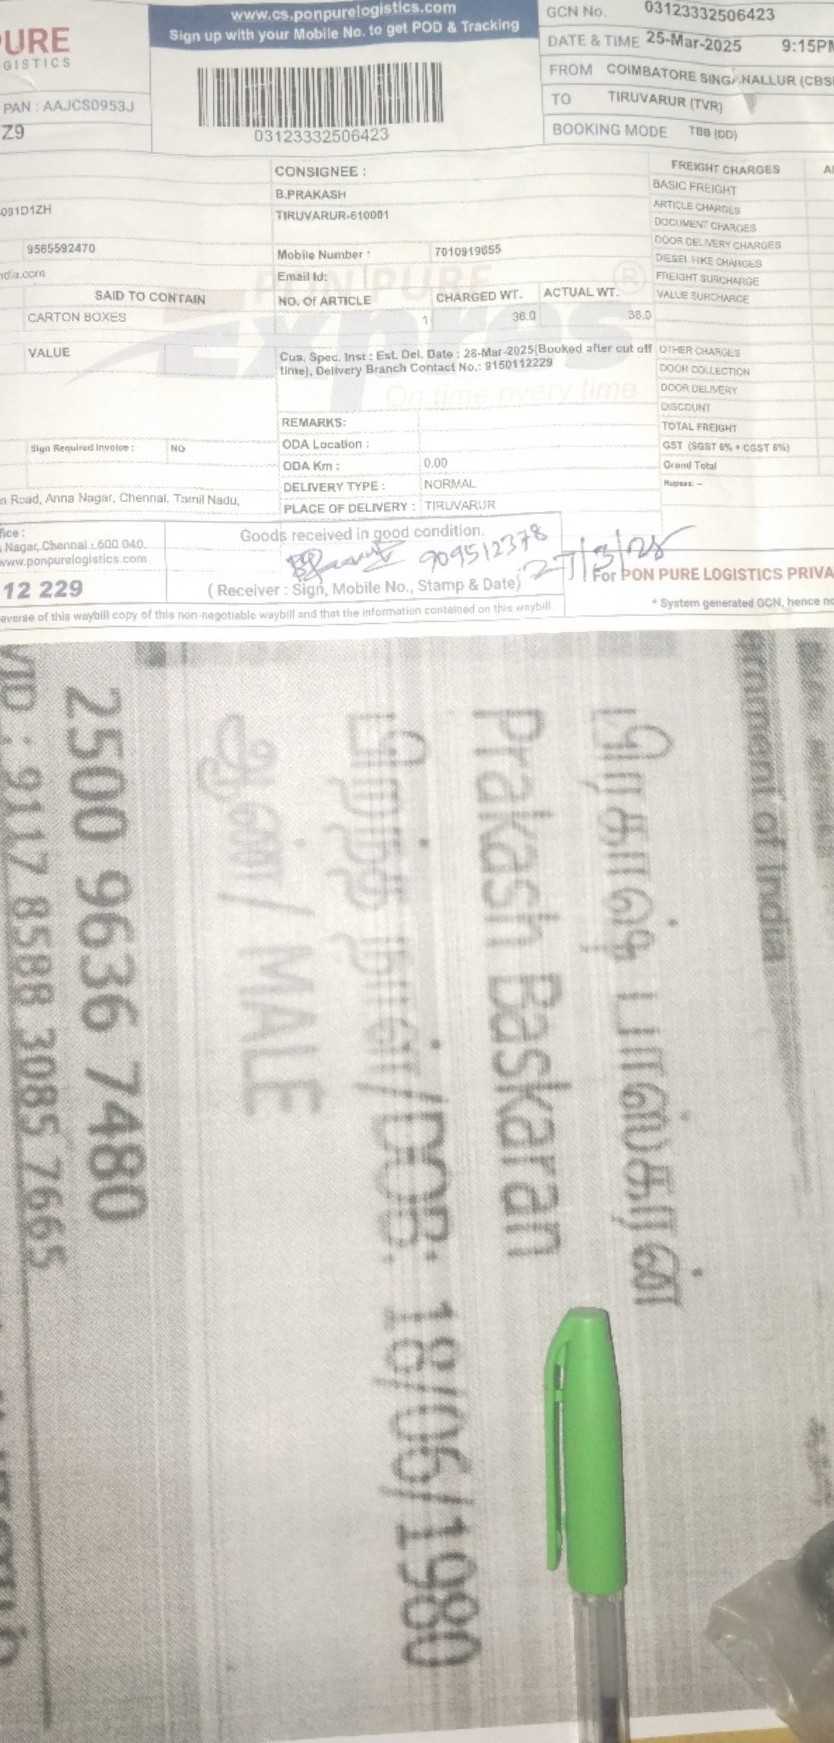 www.cs.ponpurelogistics.com
Sign up with your Mobile No. to get POD & Tracking
URE
GISTICS
PAN : AAJCS0953J
Z9
03123332506423
GCN No. 03123332506423
DATE & TIME 25-Mar-2025 9:15PM
FROM COIMBATORE SINGANALLUR (CBS
TO TIRUVARUR (TVR)
BOOKING MODE TBB (DD)
CONSIGNEE :
B.PRAKASH
TIRUVARUR-610001
091D1ZH
9565592470
Mobile Number : 7010919655
Email Id:
dia.com
SAID TO CONTAIN
NO. Of ARTICLE CHARGED WT. ACTUAL WT.
CARTON BOXES 1 36.0 36.0
PON PURE
Expres
On time every time
VALUE
Cus. Spec. Inst : Est. Del. Date : 28-Mar-2025(Booked after cut off
time), Delivery Branch Contact No.: 9150112229
REMARKS:
Sign Required Invoice : NO
ODA Location :
ODA Km : 0.00
DELIVERY TYPE : NORMAL
PLACE OF DELIVERY : TIRUVARUR
FREIGHT CHARGES
BASIC FREIGHT
ARTICLE CHARGES
DOCUMENT CHARGES
DOOR DELIVERY CHARGES
DIESEL HIKE CHARGES
FREIGHT SURCHARGE
VALUE SURCHARGE
OTHER CHARGES
DOOR COLLECTION
DOOR DELIVERY
DISCOUNT
TOTAL FREIGHT
GST (SGST 6% + CGST 6%)
Grand Total
Rupees: --
n Road, Anna Nagar, Chennai, Tamil Nadu,
fice :
Nagar, Chennai - 600 040.
www.ponpurelogistics.com
12 229
Goods received in good condition.
909512378
27/3/25
( Receiver : Sign, Mobile No., Stamp & Date)
For PON PURE LOGISTICS PRIVA
everse of this waybill copy of this non-negotiable waybill and that the information contained on this waybill
* System generated GCN, hence no
ernment of India
பிரகாஷ் பாஸ்கரன்
Prakash Baskaran
பிறந்த நாள்/DOB: 18/06/1980
ஆண்/ MALE
2500 9636 7480
VID : 9117 8588 3085 7665